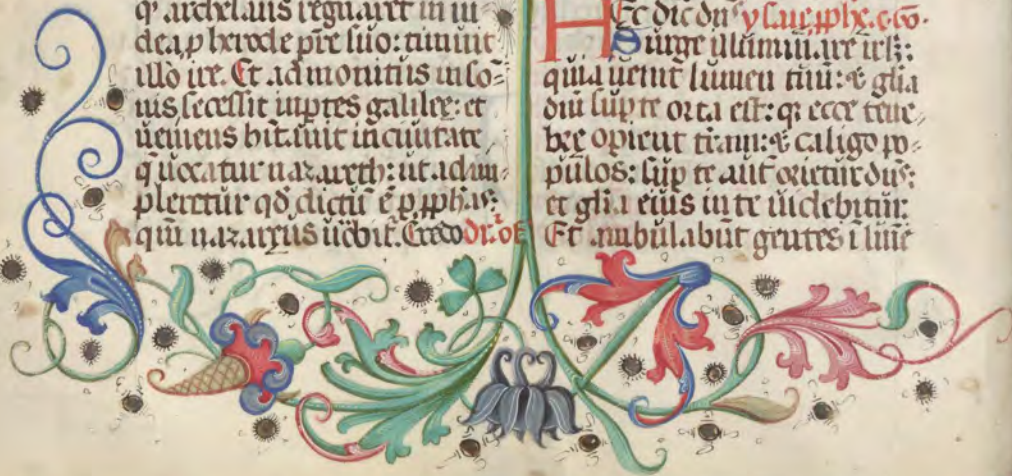 q̃ archelaus regnaret in iu
dea p herode p̃re suo: timuit
illo ire. Et admonitus in sõ
nis secessit in p̃tes galilee: et
ueniens habitauit in ciuitate
q̃ uocatur nazareth: ut adim
pleretur qď dictũ ẽ p p̃pħas:
qm̃ nazareus uocabit̃. Credo
HEc dic̃ dñs ysaye p̃pħe.
Surge illuminare irľm:
quia uenit lumen tuũ: et glĩa
dñi sup te orta est: q̃ ecce tene
bre operient t̃ram: et caligo po
pulos: sup te aut̃ orietur dñs:
et glĩa eius in te uidebitur:
Et ambulabũt gentes ĩ lumĩe